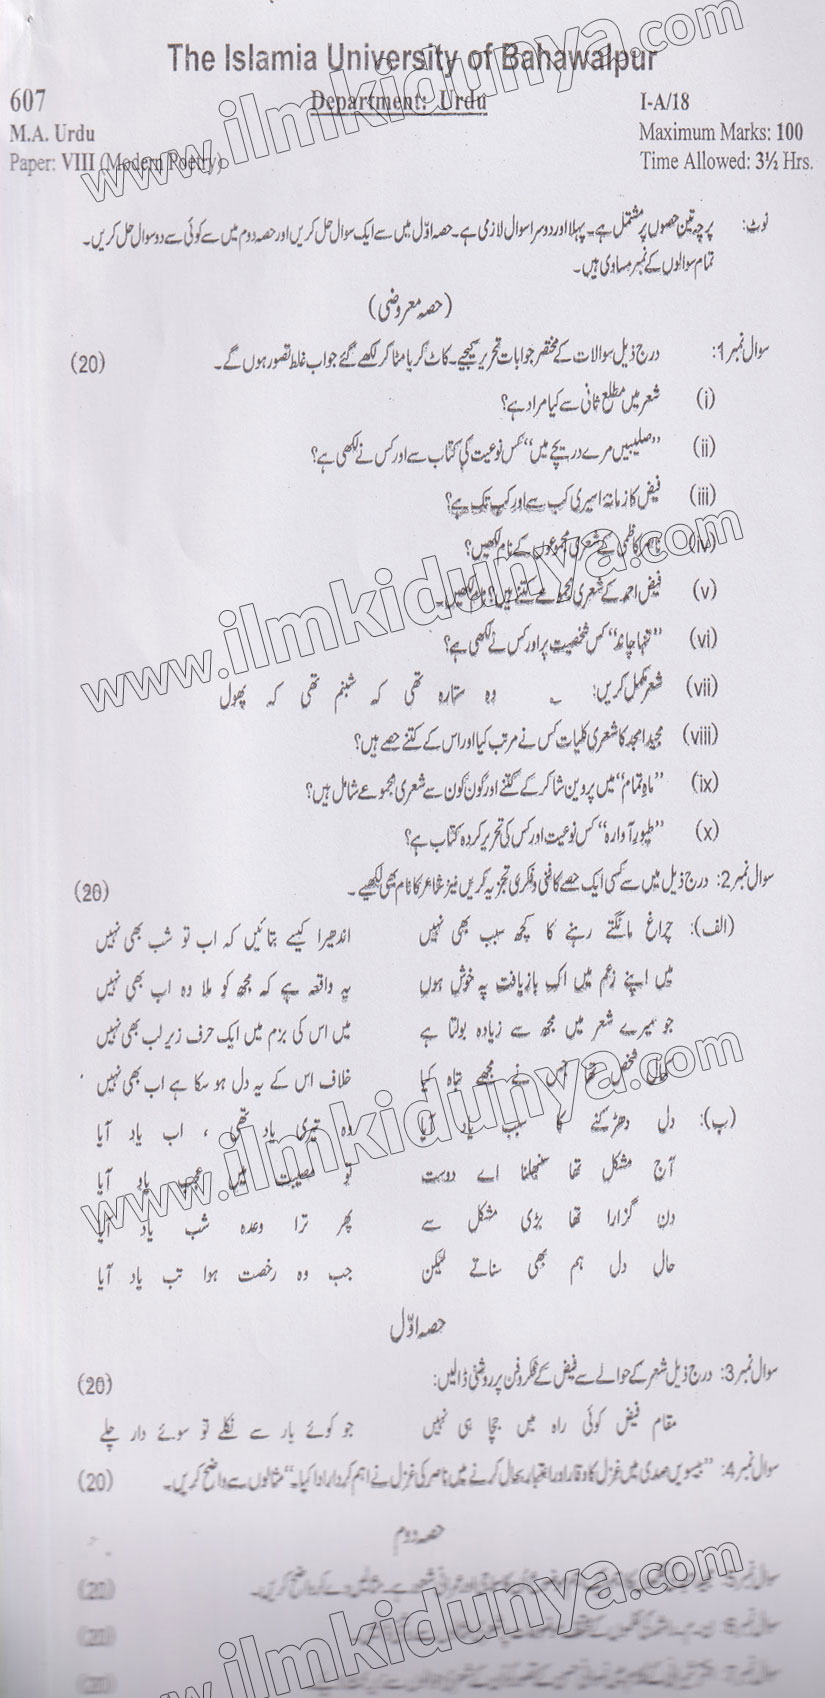 The Islamia University of Bahawalpur
607
Department: Urdu
I-A/18
M.A. Urdu
Maximum Marks: 100
Paper: VIII (Modern Poetry)
Time Allowed: 3½ Hrs.
نوٹ: پرچہ تین حصوں پر مشتمل ہے۔ پہلا اور دوسرا سوال لازمی ہے۔ حصہ اوّل میں سے ایک سوال حل کریں اور حصہ دوم میں سے کوئی سے دو سوال حل کریں۔
تمام سوالوں کے نمبر مساوی ہیں۔
(حصہ معروضی)
سوال نمبر 1: درج ذیل سوالات کے مختصر جوابات تحریر کیجیے۔ کاٹ کر یا مٹا کر لکھے گئے جواب غلط تصور ہوں گے۔ (20)
(i) شعر میں مطلع ثانی سے کیا مراد ہے؟
(ii) "صلیبیں مرے دریچے میں" کس نوعیت کی کتاب سے اور کس نے لکھی ہے؟
(iii) فیض کا زمانۂ اسیری کب سے اور کب تک ہے؟
(iv) ناصر کاظمی کے شعری مجموعوں کے نام لکھیں؟
(v) فیض احمد کے شعری مجموعے کتنے ہیں؟ نام لکھیں۔
(vi) "تنہا چاند" کس شخصیت پر اور کس نے لکھی ہے؟
(vii) شعر مکمل کریں: ؎ وہ ستارہ تھی کہ شبنم تھی کہ پھول
(viii) مجید امجد کا شعری کلیات کس نے مرتب کیا اور اس کے کتنے حصے ہیں؟
(ix) "ماہِ تمام" میں پروین شاکر کے کتنے اور کون کون سے شعری مجموعے شامل ہیں؟
(x) "طیورِ آوارہ" کس نوعیت اور کس کی تحریر کردہ کتاب ہے؟
سوال نمبر 2: درج ذیل میں سے کسی ایک حصے کا فنی و فکری تجزیہ کریں نیز شاعر کا نام بھی لکھیے۔ (20)
(الف): چراغ مانگتے رہنے کا کچھ سبب بھی نہیں اندھیرا کیسے بتائیں کہ اب تو شب بھی نہیں
میں اپنے زعم میں اک بازیافت پہ خوش ہوں یہ واقعہ ہے کہ مجھ کو ملا وہ اب بھی نہیں
جو میرے شعر میں مجھ سے زیادہ بولتا ہے میں اس کی بزم میں ایک حرف زیر لب بھی نہیں
شخص تھا جس نے مجھے تباہ کیا خلاف اس کے یہ دل ہو سکا ہے اب بھی نہیں
(ب): دل دھڑکنے کا سبب یاد آیا وہ تیری یاد تھی ، اب یاد آیا
آج مشکل تھا سنبھلنا اے دوست تو مصیبت میں عجب یاد آیا
دن گزارا تھا بڑی مشکل سے پھر ترا وعدہ شب یاد آیا
حال دل ہم بھی سناتے لیکن جب وہ رخصت ہوا تب یاد آیا
حصہ اوّل
سوال نمبر 3: درج ذیل شعر کے حوالے سے فیض کے فکر و فن پر روشنی ڈالیں: (20)
مقام فیض کوئی راہ میں جچا ہی نہیں جو کوئے یار سے نکلے تو سوئے دار چلے
سوال نمبر 4: "بیسویں صدی میں غزل کا وقار اور اعتبار بحال کرنے میں ناصر کی غزل نے اہم کردار ادا کیا۔" مثالوں سے واضح کریں۔ (20)
حصہ دوم
سوال نمبر 5: (20)
سوال نمبر 6: (20)
سوال نمبر 7: (20)
www.ilmkidunya.com
www.ilmkidunya.com
www.ilmkidunya.com
www.ilmkidunya.com